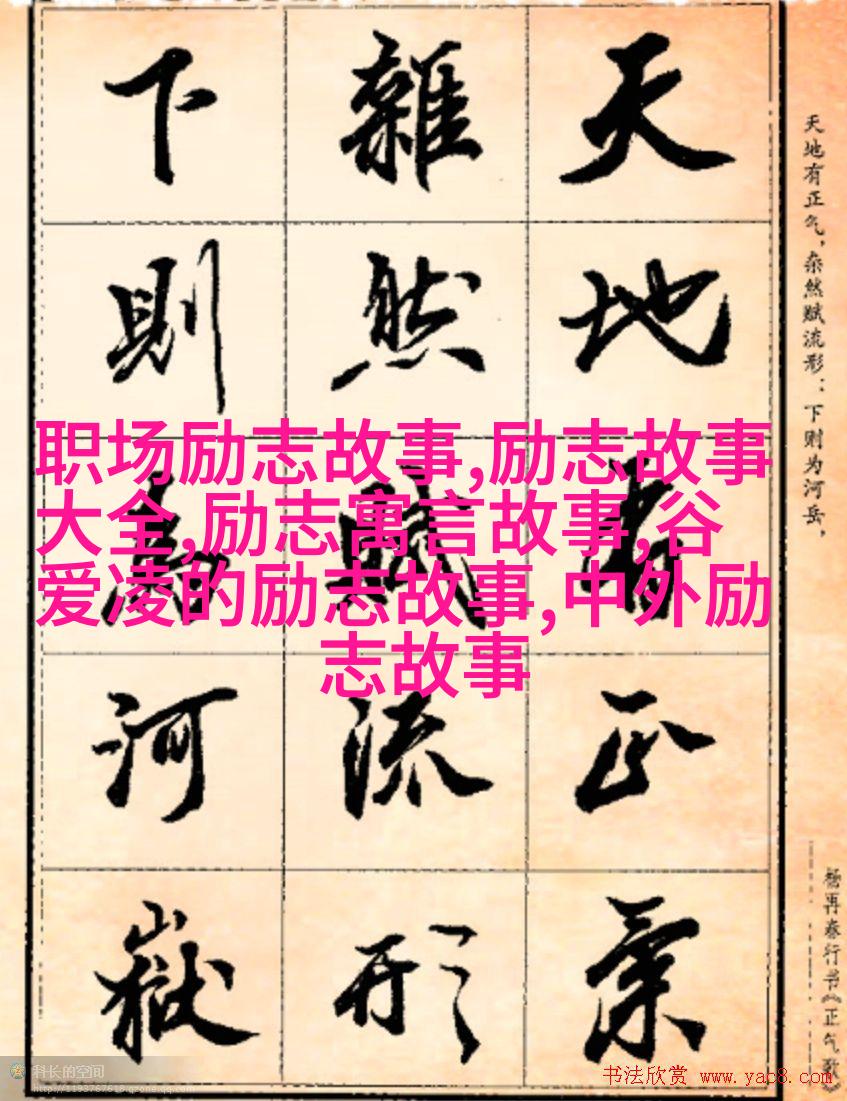 天地有正氣
雜然賦流形
下則為河嶽
天地有正气，杂然赋流形：下则为河岳，
杨再春行书《正气歌》
职场励志故事,励志故事
大全,励志寓言故事,谷
爱凌的励志故事,中外励
志故事
科长的空间
http://1193767618.qzone.qq.com
书法欣赏 www.yac8.com